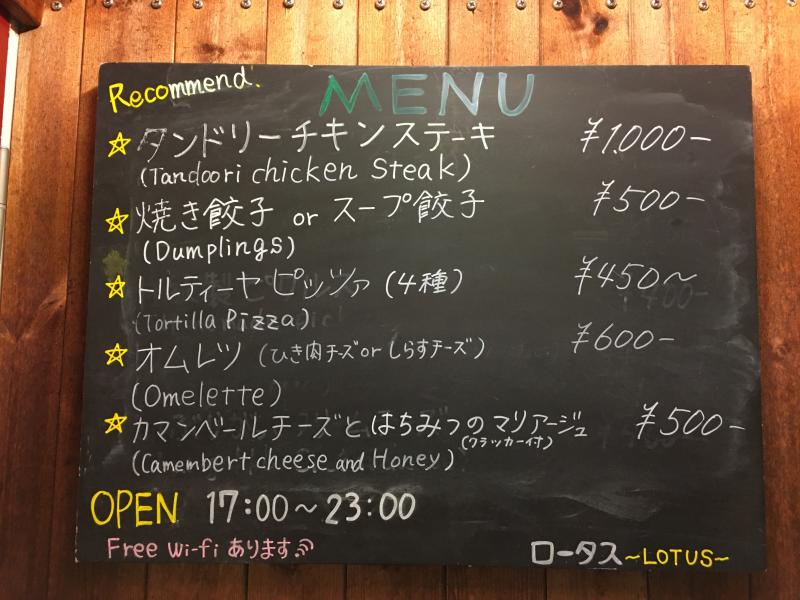 Recommend.
MENU
☆タンドリーチキンステーキ ¥1.000-
(Tandoori chicken Steak)
☆焼き餃子 or スープ餃子 ¥500-
(Dumplings)
☆トルティーヤピッツァ (4種) ¥450〜
(Tortilla Pizza)
☆オムレツ (ひき肉チーズorしらすチーズ) ¥600-
(Omelette)
☆カマンベールチーズとはちみつのマリアージュ ¥500-
(クラッカー付)
(Camembert cheese and Honey)
OPEN 17:00〜23:00
Free Wi-fi あります
ロータス ~LOTUS~